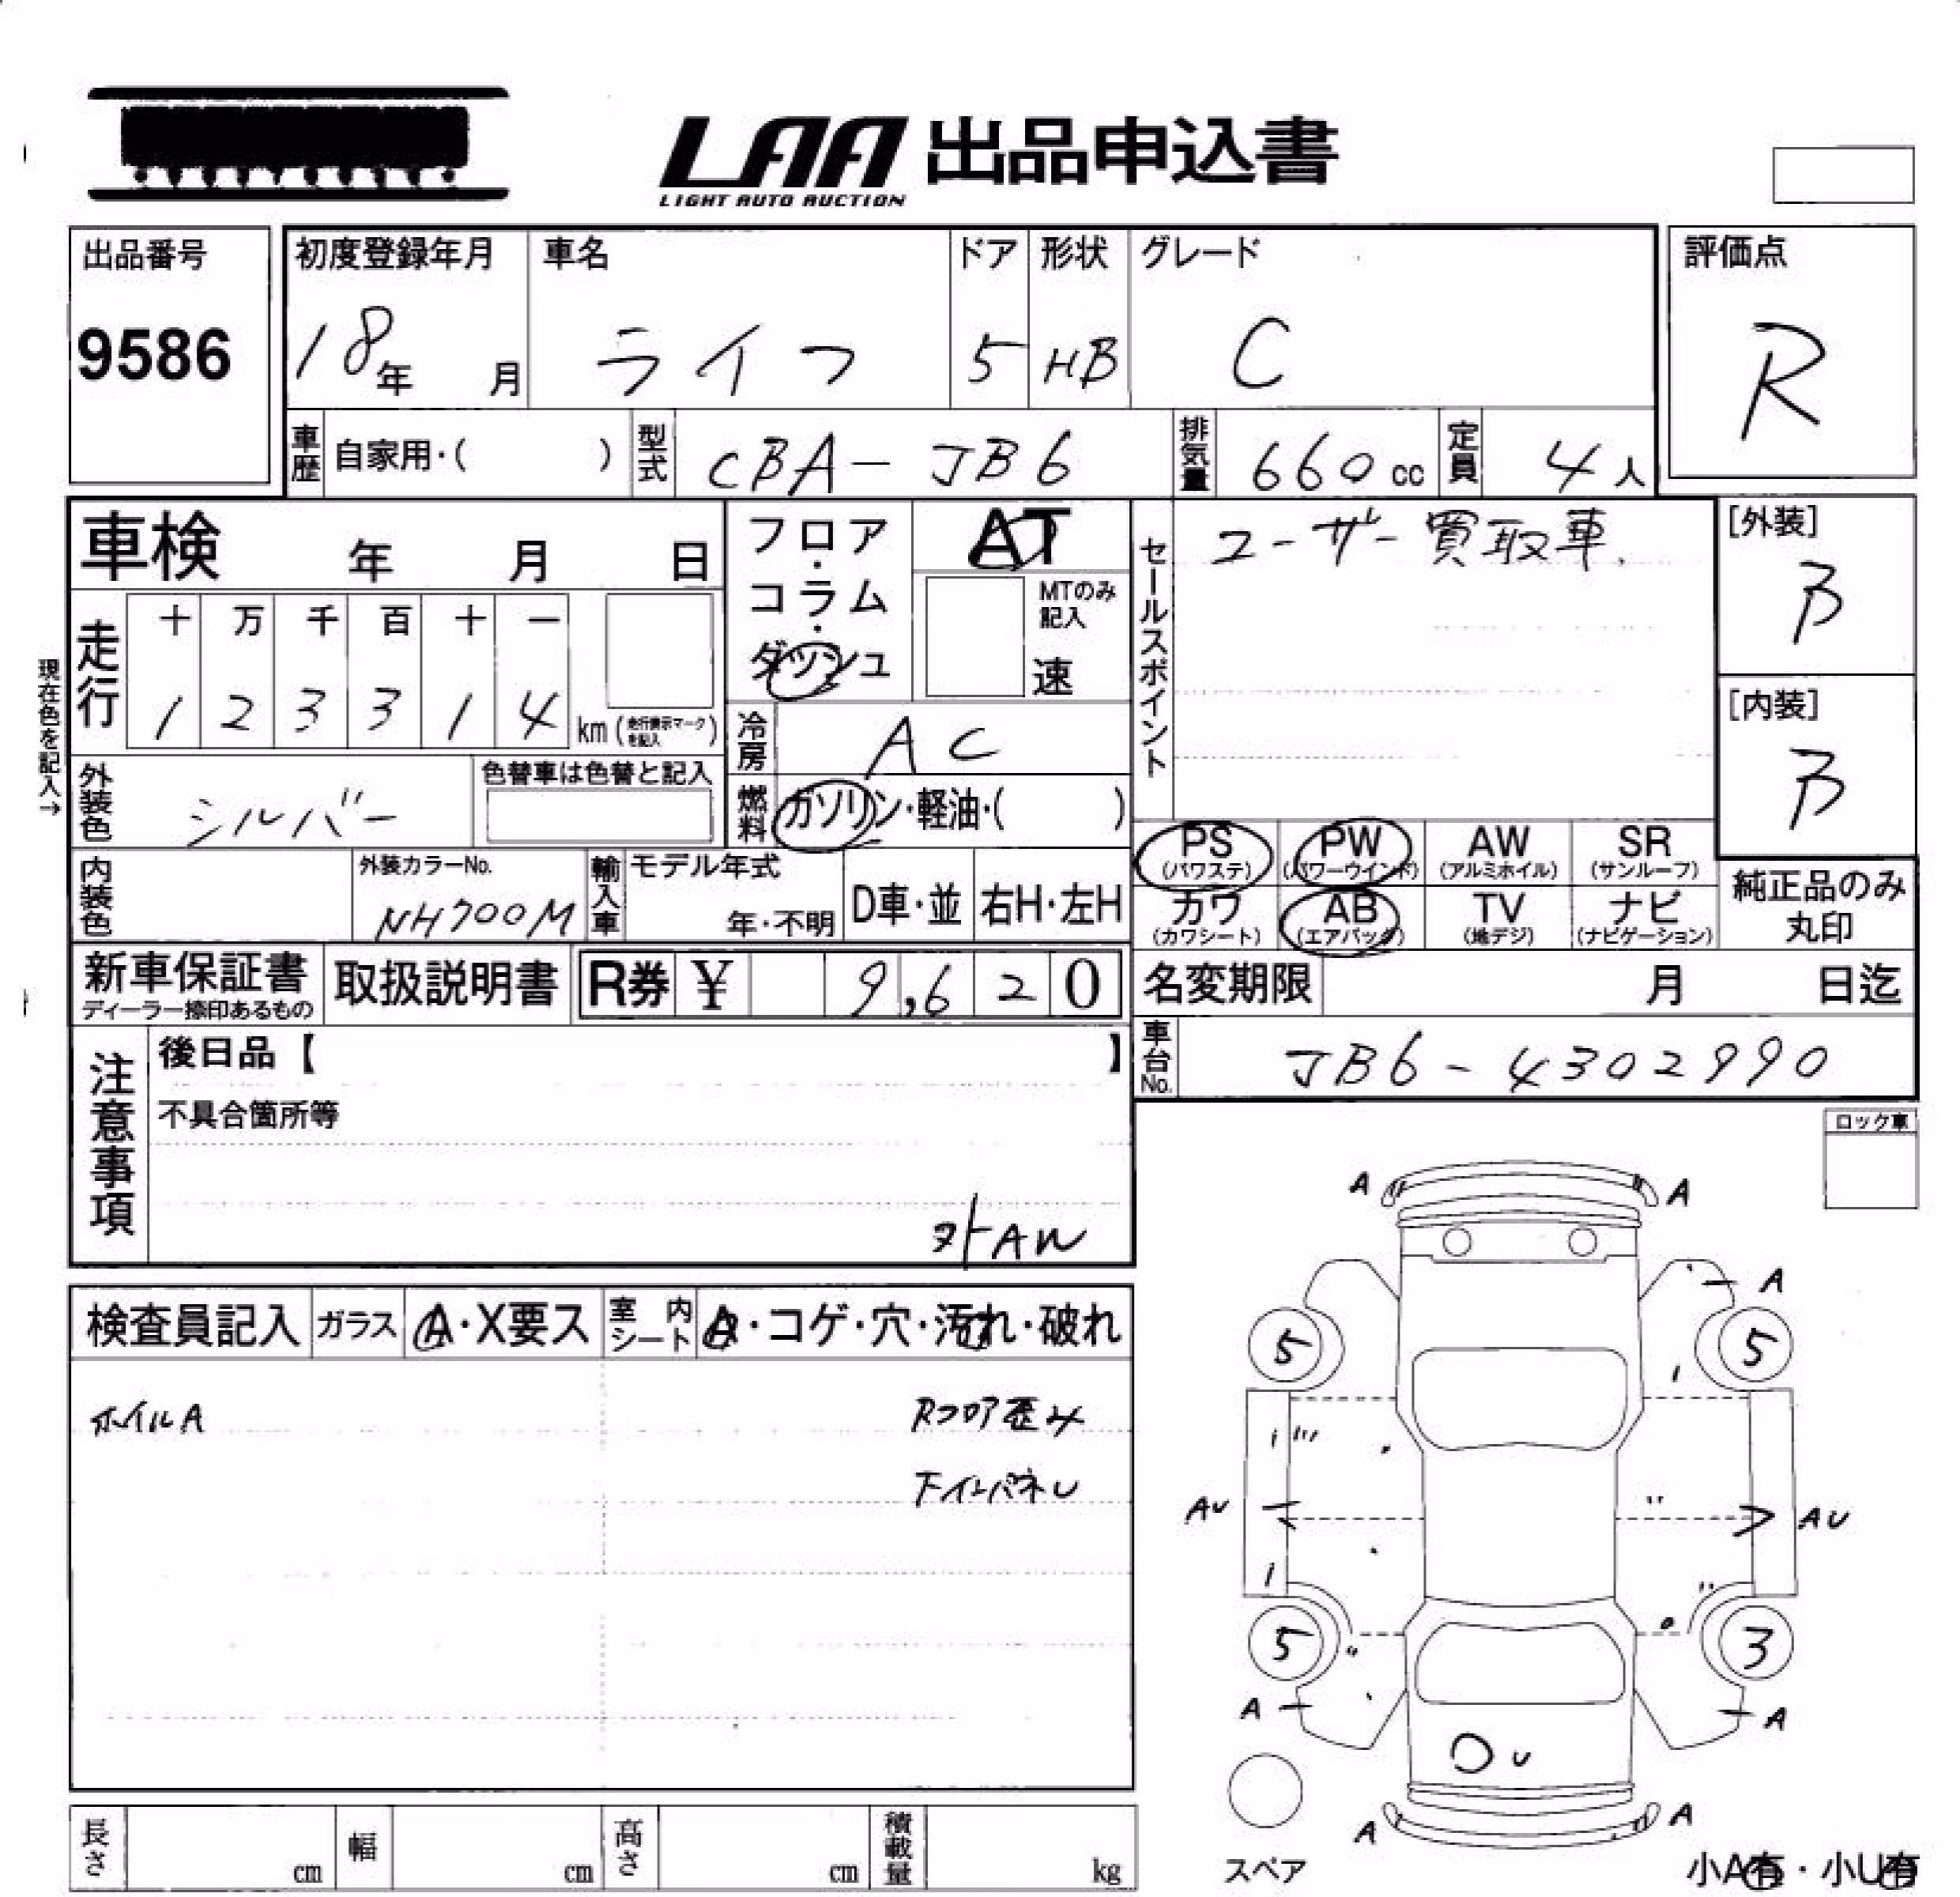 LAA 出品申込書
LIGHT AUTO AUCTION
出品番号
9586
初度登録年月
18年 月
車名
ライフ
ドア
5
形状
HB
グレード
C
評価点
R
車歴 自家用・( )
型式 CBA-JB6
排気量 660cc
定員 4人
車検 年 月 日
フロア・コラム・ダッシュ
AT
MTのみ記入
速
セールスポイント
ユーザー買取車.
[外装]
B
[内装]
B
現在色を記入→
走行
十 万 千 百 十 一
1 2 3 3 1 4 km (走行表示マークを記入)
冷房 AC
外装色 シルバー
色替車は色替と記入
燃料 ガソリン・軽油・( )
PS (パワステ)
PW (パワーウインド)
AW (アルミホイル)
SR (サンルーフ)
カワ (カワシート)
AB (エアバッグ)
TV (地デジ)
ナビ (ナビゲーション)
純正品のみ
丸印
内装色
外装カラーNo.
NH700M
輸入車
モデル年式
年・不明
D車・並
右H・左H
新車保証書
ディーラー捺印あるもの
取扱説明書
R券 ¥ 9,620
名変期限 月 日迄
車台No. JB6-4302990
注意事項
後日品【 】
不具合箇所等
AW
ロック車
検査員記入 ガラス A・X要ス 室内シート A・コゲ・穴・汚れ・破れ
ホイルA
Rフロア歪み
下インパネU
A A
A
5 5
AU AU
5 3
A A
U
A A
スペア
小A有・小U有
長さ cm
幅 cm
高さ cm
積載量 kg